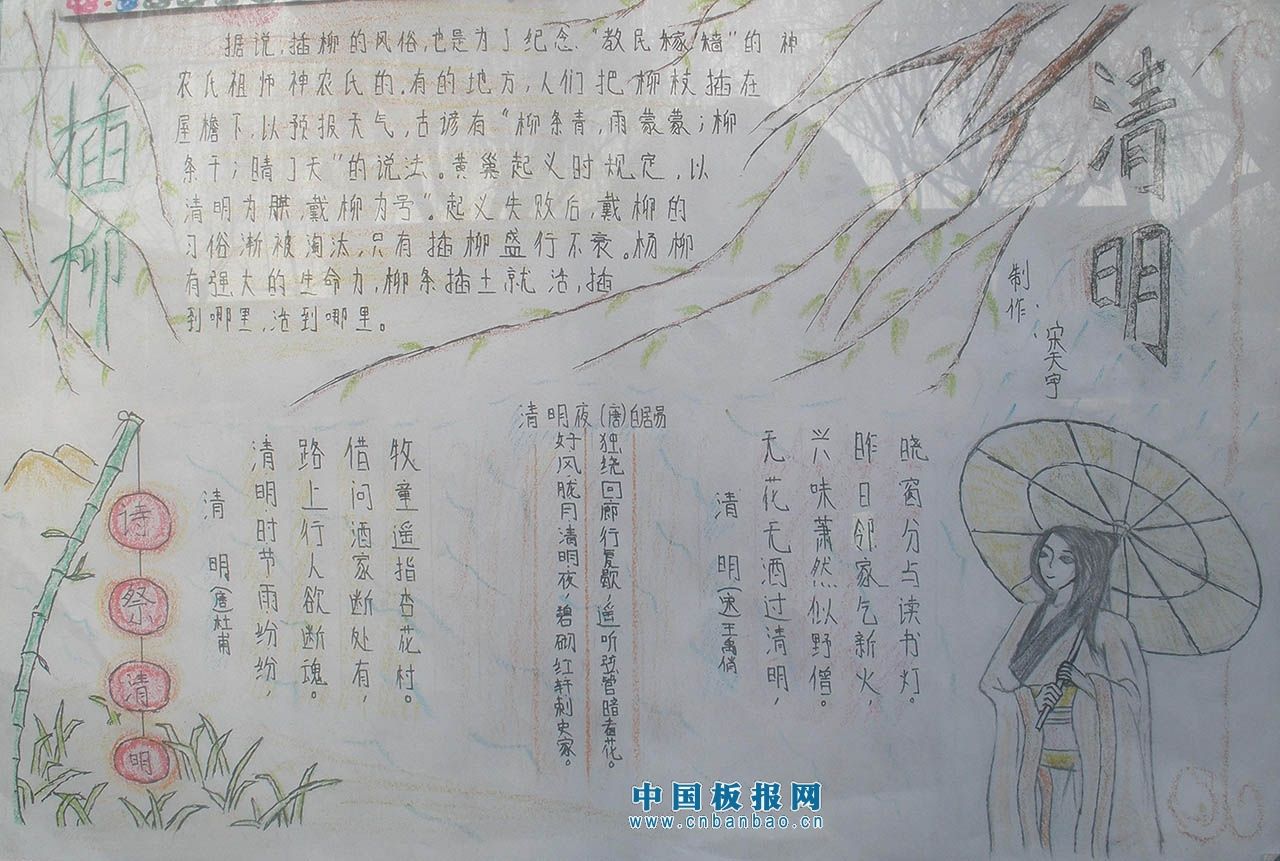 清明
制作：宋天宇
插柳
据说，插柳的风俗，也是为了纪念"教民嫁穑"的神
农氏祖师神农氏的.有的地方，人们把柳枝插在
屋檐下，以预报天气，古谚有"柳条青，雨蒙蒙；柳
条干；晴了天"的说法。黄巢起义时规定，以
清明为期，戴柳为号"。起义失败后，戴柳的
习俗渐被淘汰，只有插柳盛行不衰。杨柳
有强大的生命力，柳条插土就活，插
到哪里，活到哪里。
诗祭清明
清明 (唐)杜甫
清明时节雨纷纷，
路上行人欲断魂。
借问酒家断处有，
牧童遥指杏花村。
清明夜 (唐)白居易
好风胧月清明夜，碧砌红轩刺史家。
独绕回廊行复歇，遥听弦管暗看花。
清明 (宋)王禹偁
无花无酒过清明，
兴味萧然似野僧。
昨日邻家乞新火，
晓窗分与读书灯。
中国板报网
www.cnbanbao.cn